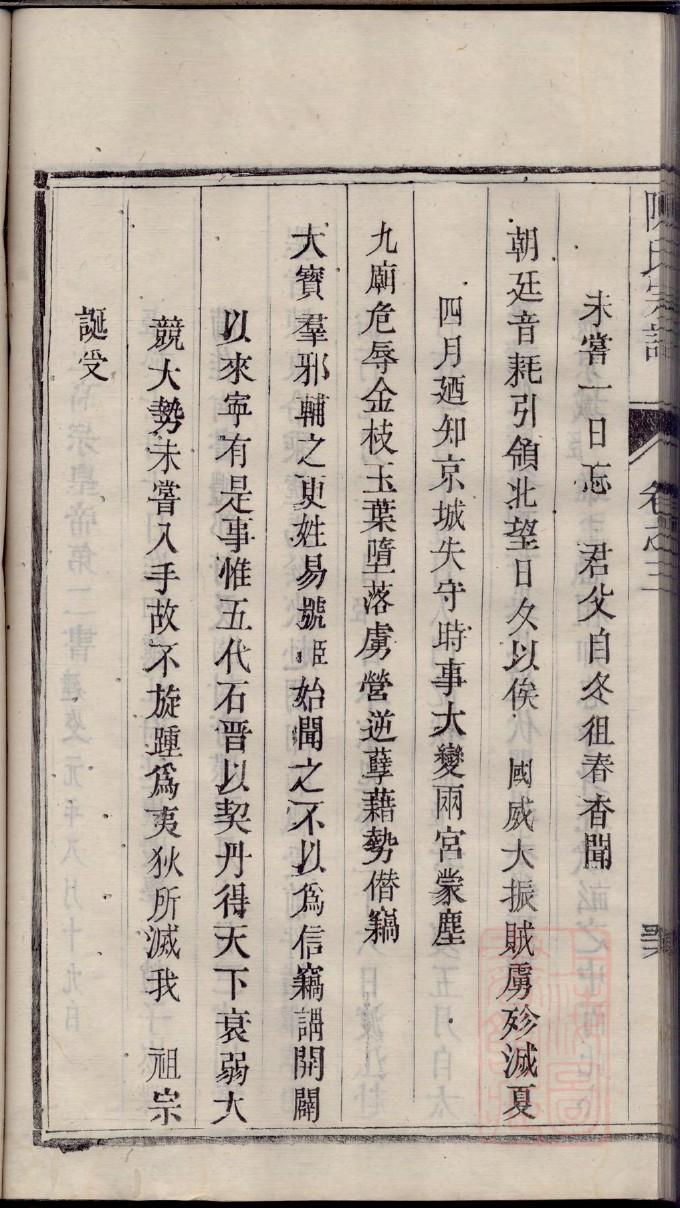 陳氏宗譜 卷之三
未嘗一日忘　君父自冬徂春杳聞
朝廷音耗引領北望日久以俟　國威大振賊虜殄滅夏
四月廼知京城失守時事大變兩宮蒙塵
九廟危辱金枝玉葉墮落虜營逆孽藉勢僭竊
大寶羣邪輔之更姓易號臣始聞之不以爲信竊謂開闢
以來寧有是事惟五代石晋以契丹得天下衰弱大
競大勢未嘗入手故不旋踵爲夷狄所滅我　祖宗
誕受